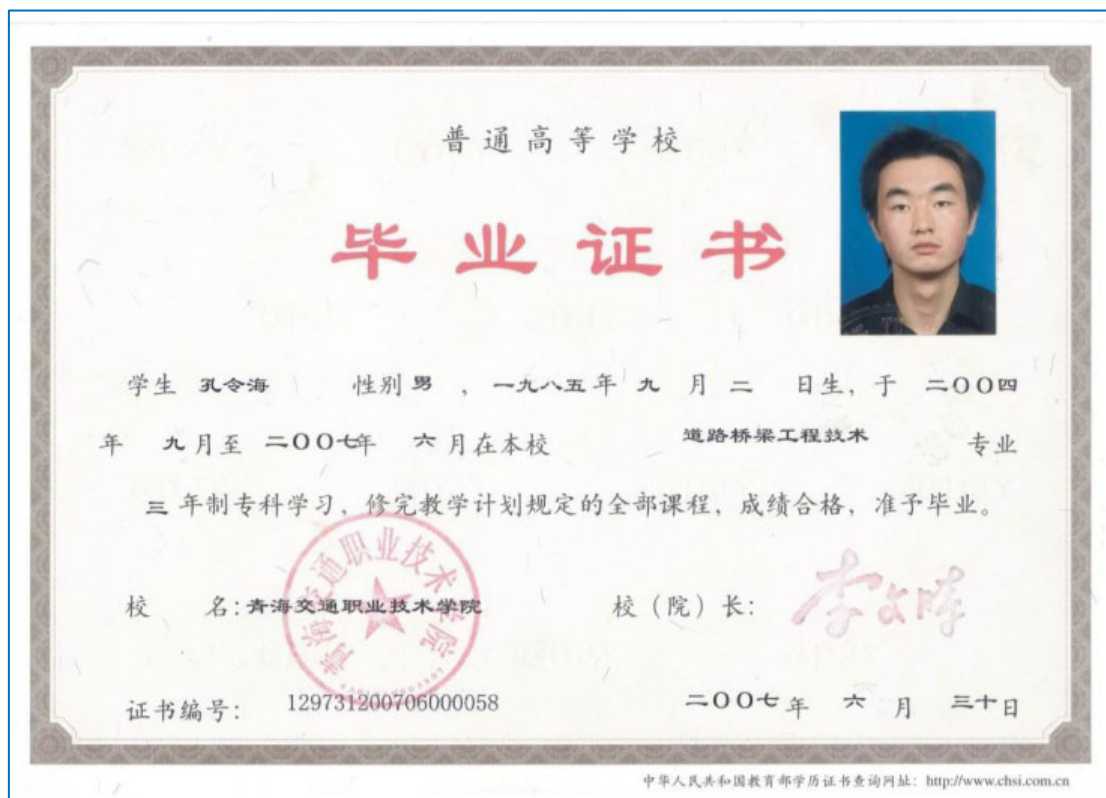 普通高等学校
毕业证书
学生 孔令海 性别 男 ，一九八五年 九 月 二 日生，于 二〇〇四
年 九月至 二〇〇七年 六月在本校 道路桥梁工程技术 专业
三 年制专科学习，修完教学计划规定的全部课程，成绩合格，准予毕业。
青海交通职业技术学院
校 名：青海交通职业技术学院 校（院）长：
证书编号： 129731200706000058 二〇〇七年 六 月 三十日
中华人民共和国教育部学历证书查询网址： http://www.chsi.com.cn